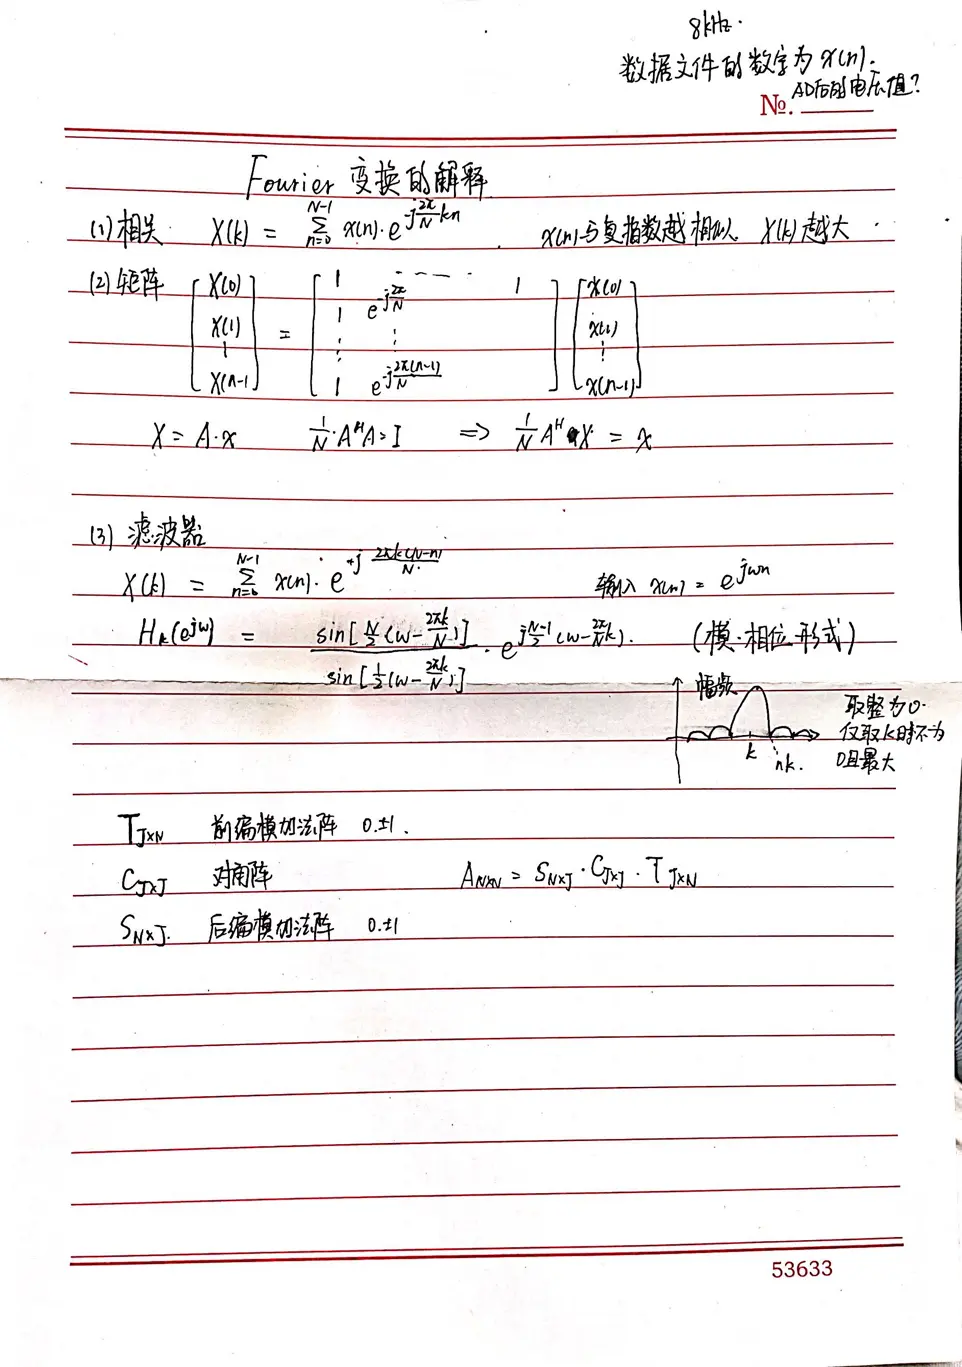 8kHz.
数据文件的数字为 x(n).
AD后的电压值?
№.
Fourier 变换的解释
(1) 相关 X(k) = Σ_{n=0}^{N-1} x(n)·e^{-j\frac{2π}{N}kn} . x(n)与复指数越相似 X(k)越大
(2) 矩阵 [X(0) X(1) ⋮ X(n-1] = [1 ---- 1; 1 e^{-j\frac{2π}{N}}; ⋮ ⋮; 1 e^{-j\frac{2π(n-1)}{N}}] [x(0) x(1) ⋮ x(n-1)]
X = A·x \frac{1}{N}·A^H A = I => \frac{1}{N} A^H X = x
(3) 滤波器
X(k) = Σ_{n=0}^{N-1} x(n)· e^{+j\frac{2πk(N-n)}{N}} 输入 x(n) = e^{jwn}
H_k(e^{jw}) = \frac{sin[\frac{N}{2}(w-\frac{2πk}{N})]}{sin[\frac{1}{2}(w-\frac{2πk}{N})]} · e^{j\frac{N-1}{2}(w-\frac{2π}{N}k)}. (模·相位形式)
幅频
k nk.
取整为0.
仅取k时不为
0且最大
T_{J×N} 前编模加法阵 0.±1.
C_{J×J} 对角阵 A_{N×N} = S_{N×J}·C_{J×J}·T_{J×N}
S_{N×J}. 后编模加法阵 0.±1
53633